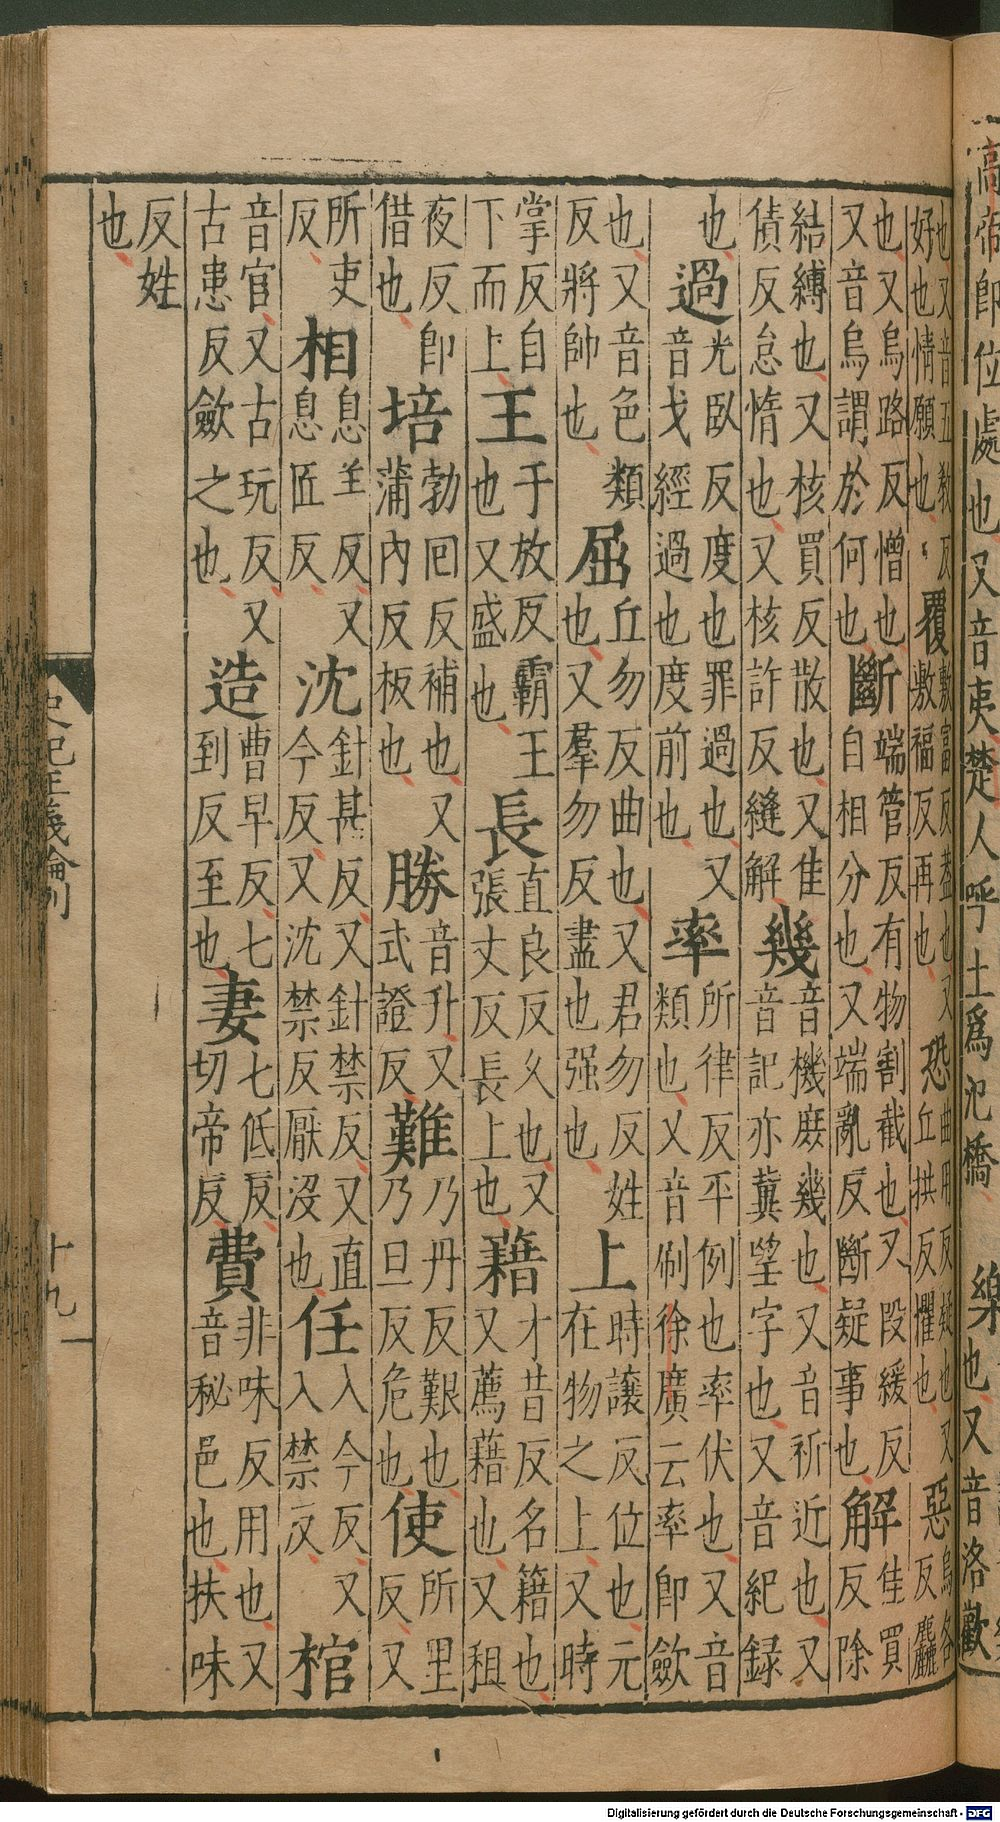 高帝即位處也又音夷楚人呼土為汜橋 樂也又音洛歡
也又音五教反好也情願也覆敷富反蓋也又敷福反再也恐曲用反疑也又丘拱反懼也惡烏各反麤
也又烏路反憎也又音烏謂於何也斷端管反有物割截也又段緩反自相分也又端亂反斷疑事也解佳買反除
結縛也又核買反散也又佳債反怠惰也又核詐反縫解幾音機庶幾也又音祈近也又音記亦冀望字也又音紀錄
也過光臥反度也罪過也又音戈經過也度前也率所律反平例也率伏也又音類也又音刷徐廣云率即歛
也又音色類反將帥也屈丘勿反曲也又君勿反姓也又羣勿反盡也强也上時讓反位也元在物之上又時
掌反自下而上王于放反霸王也又盛也長直良反久也又張丈反長上也藉才昔反名籍也又薦藉也又租
夜反即借也培勃回反補也又蒲內反板也勝音升又式證反難乃丹反艱也乃旦反危也使所里反又
所吏反相息羊反又息匠反沈針甚反又針禁反又直今反又沈禁反厭沒也任入今反又入禁反棺
音官又古玩反又古患反歛之也造曹早反七到反至也妻七低反切帝反費非味反用也又音秘邑也扶味
反姓也
史記正義論例 十九
Digitalisierung gefördert durch die Deutsche Forschungsgemeinschaft - DFG